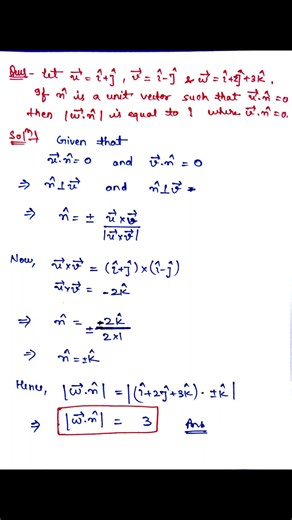 Ques - Let u⃗ = î+ĵ, v⃗ = î-ĵ & w⃗ = î+2ĵ+3k̂.
If n̂ is a unit vector such that u⃗.n̂=0
then |w⃗.n̂| is equal to ? where v⃗.n̂=0.
Solⁿ! Given that
u⃗.n̂=0 and v⃗.n̂=0
⇒ n̂⊥u⃗ and n̂⊥v⃗
⇒ n̂ = ± u⃗×v⃗ / |u⃗×v⃗|
Now, u⃗×v⃗ = (î+ĵ)×(î-ĵ)
u⃗×v⃗ = -2k̂
⇒ n̂ = ± -2k̂ / 2×1
⇒ n̂ = ±k̂
Hence, |w⃗.n̂| = |(î+2ĵ+3k̂). ±k̂|
⇒ |w⃗.n̂| = 3 Ans